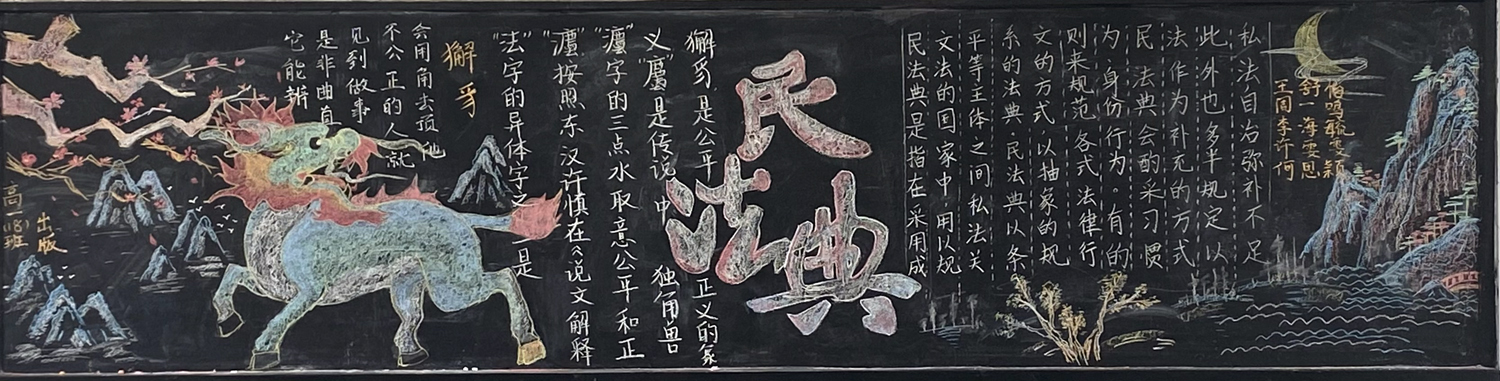 高一(18)班
出版
獬豸
它能辨
是非曲直
见到做事
不公正的人就
会用角去顶他
“法”字的异体字之一是
“灋”按照东汉许慎在《说文解释
“灋”字的三点水取意公平和正
义“廌”是传说中独角兽
獬豸是公平正义的象
民法典
民法典是指在采用成
文法的国家中用以规
平等主体之间私法关
系的法典.民法典以条
文的方式以抽象的规
则来规范各式法律行
为身份行为有的
民法典会酌采习惯
法作为补充的方式
此外也多半规定以
私法自治弥补不足
王周李许何
舒一海雲恩
鸣毓雯颖